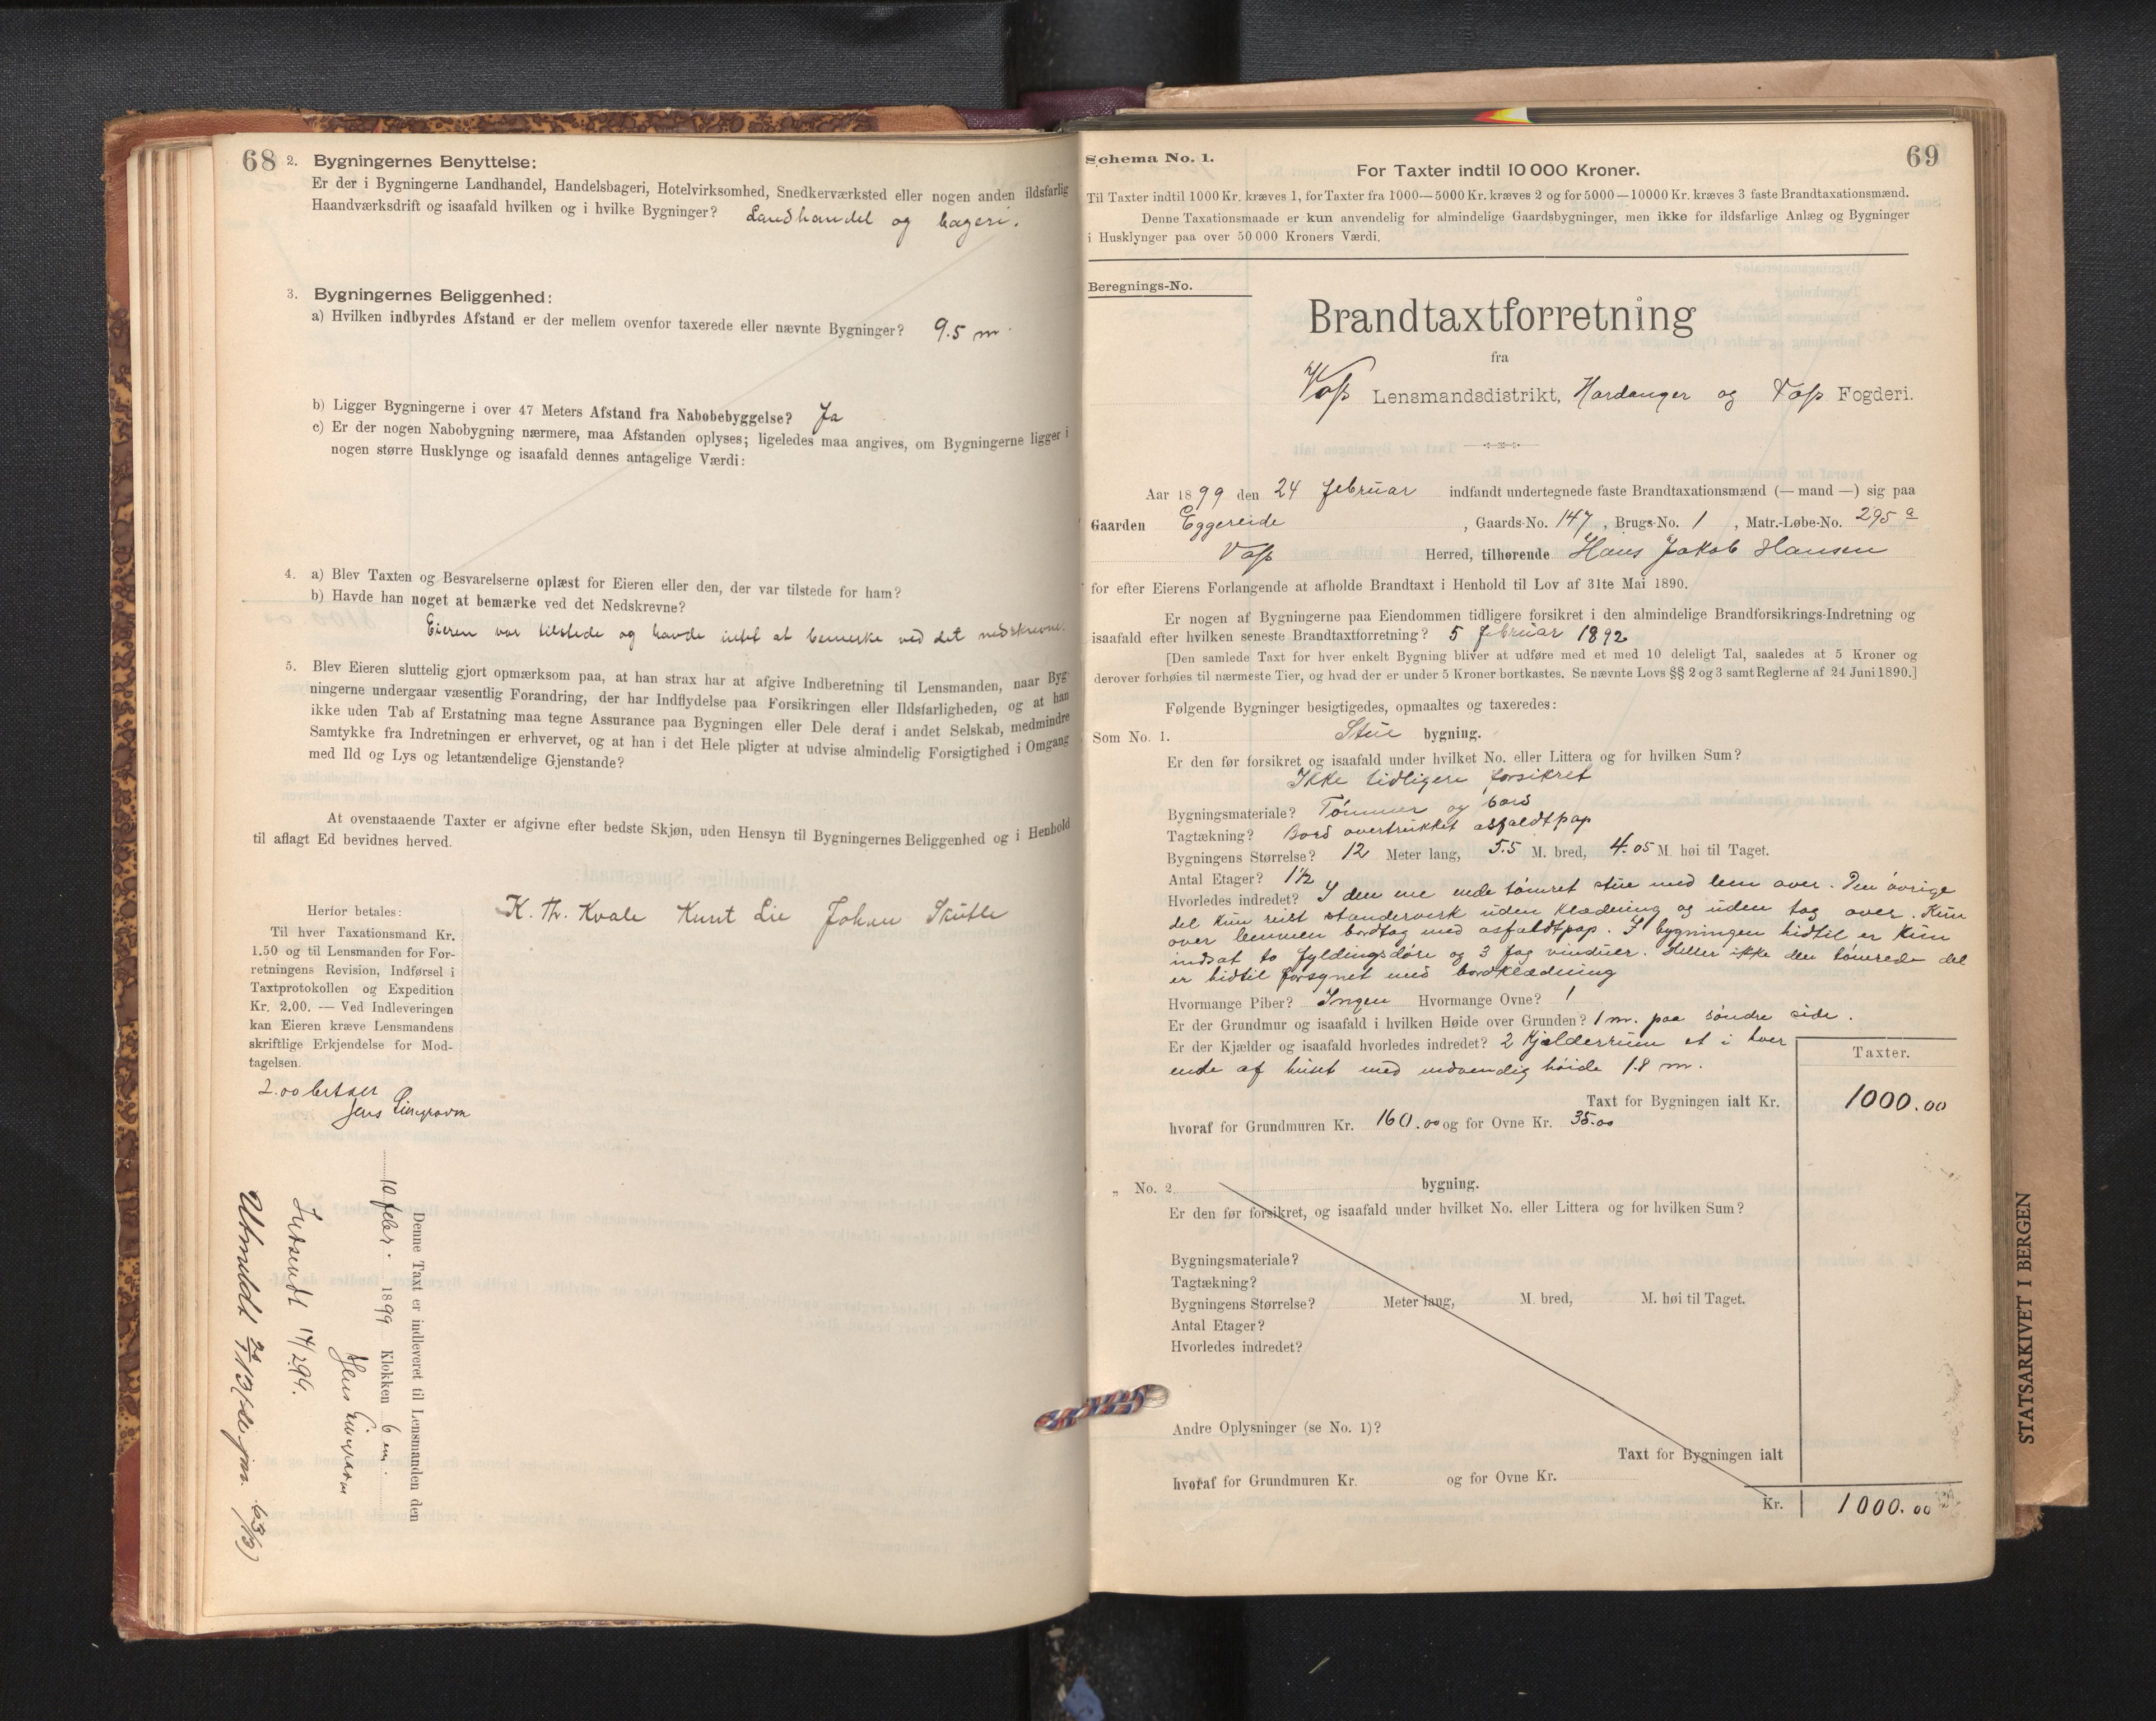 68
2. Bygningernes Benyttelse:
Er der i Bygningerne Landhandel, Handelsbageri, Hotelvirksomhed, Snedkerværksted eller nogen anden ildsfarlig
Haandværksdrift og isaafald hvilken og i hvilke Bygninger? Landhandel og bageri.
3. Bygningernes Beliggenhed:
a) Hvilken indbyrdes Afstand er der mellem ovenfor taxerede eller nævnte Bygninger? 9.5 m
b) Ligger Bygningerne i over 47 Meters Afstand fra Nabobebyggelse? Ja
c) Er der nogen Nabobygning nærmere, maa Afstanden oplyses; ligeledes maa angives, om Bygningerne ligger i
nogen større Husklynge og isaafald dennes antagelige Værdi:
4. a) Blev Taxten og Besvarelserne oplæst for Eieren eller den, der var tilstede for ham?
b) Havde han noget at bemærke ved det Nedskrevne?
Eieren var tilstede og havde intet at bemerke ved det nedskrevne.
5. Blev Eieren sluttelig gjort opmærksom paa, at han strax har at afgive Indberetning til Lensmanden, naar Byg-
ningerne undergaar væsentlig Forandring, der har Indflydelse paa Forsikringen eller Ildsfarligheden, og at han
ikke uden Tab af Erstatning maa tegne Assurance paa Bygningen eller Dele deraf i andet Selskab, medmindre
Samtykke fra Indretningen er erhvervet, og at han i det Hele pligter at udvise almindelig Forsigtighed i Omgang
med Ild og Lys og letantændelige Gjenstande?
At ovenstaaende Taxter er afgivne efter bedste Skjøn, uden Hensyn til Bygningernes Beliggenhed og i Henhold
til aflagt Ed bevidnes herved.
K. Th. Kvale Knut Lie Johan Skutle
Herfor betales:
Til hver Taxationsmand Kr.
1.50 og til Lensmanden for For-
retningens Revision, Indførsel i
Taxtprotokollen og Expedition
Kr. 2.00. — Ved Indleveringen
kan Eieren kræve Lensmandens
skriftlige Erkjendelse for Mod-
tagelsen.
2.00 betalt
Jens
Denne Taxt er indleveret til Lensmanden den
10 febr. 1899 Klokken 6 em.
Jens
Indsendt 14/2 99.
Utmeldt
69
Schema No. 1.
For Taxter indtil 10 000 Kroner.
Til Taxter indtil 1000 Kr. kræves 1, for Taxter fra 1000—5000 Kr. kræves 2 og for 5000—10000 Kr. kræves 3 faste Brandtaxationsmænd.
Denne Taxationsmaade er kun anvendelig for almindelige Gaardsbygninger, men ikke for ildsfarlige Anlæg og Bygninger
i Husklynger paa over 50 000 Kroners Værdi.
Beregnings-No.
Brandtaxtforretning
fra
Voss Lensmandsdistrikt, Hardanger og Voss Fogderi.
Aar 1899 den 24 februar indfandt undertegnede faste Brandtaxationsmænd (— mand —) sig paa
Gaarden Eggereide, Gaards-No. 147, Brugs-No. 1, Matr.-Løbe-No. 295 a
Voss Herred, tilhørende Hans Jakob Hansen
for efter Eierens Forlangende at afholde Brandtaxt i Henhold til Lov af 31te Mai 1890.
Er nogen af Bygningerne paa Eiendommen tidligere forsikret i den almindelige Brandforsikrings-Indretning og
isaafald efter hvilken seneste Brandtaxtforretning? 5 februar 1892
[Den samlede Taxt for hver enkelt Bygning bliver at udføre med et med 10 deleligt Tal, saaledes at 5 Kroner og
derover forhøies til nærmeste Tier, og hvad der er under 5 Kroner bortkastes. Se nævnte Lovs §§ 2 og 3 samt Reglerne af 24 Juni 1890.]
Følgende Bygninger besigtigedes, opmaaltes og taxeredes:
Som No. 1. Stue bygning.
Er den før forsikret og isaafald under hvilket No. eller Littera og for hvilken Sum?
Ikke tidligere forsikret
Bygningsmateriale? Tømmer og bord
Tagtækning? Bord overtrukket asfaldtpap
Bygningens Størrelse? 12 Meter lang, 5.5 M. bred, 4.05 M. høi til Taget.
Antal Etager? 1½
Hvorledes indredet? I den ene ende tømret stue med lem over. Den øvrige
del kun reist standerverk uden klædning og uden tag over. Kun
over lemmen bordtag med asfaldtpap. I bygningen hidtil er kun
indsat to fyldingsdøre og 3 fag vinduer. Heller ikke den tømrede del
er hidtil forsynet med bordklædning
Hvormange Piber? Ingen Hvormange Ovne? 1
Er der Grundmur og isaafald i hvilken Høide over Grunden? 1 m. paa søndre side.
Er der Kjælder og isaafald hvorledes indredet? 2 Kjælderrum et i hver
ende af huset med indvendig høide 1.8 m.
Taxter.
Taxt for Bygningen ialt Kr. 1000.00
hvoraf for Grundmuren Kr. 160.00 og for Ovne Kr. 35.00
„ No. 2 bygning.
Er den før forsikret, og isaafald under hvilket No. eller Littera og for hvilken Sum?
Bygningsmateriale?
Tagtækning?
Bygningens Størrelse? Meter lang, M. bred, M. høi til Taget.
Antal Etager?
Hvorledes indredet?
Andre Oplysninger (se No. 1)?
Taxt for Bygningen ialt
hvoraf for Grundmuren Kr. og for Ovne Kr.
Kr. 1000.00
STATSARKIVET I BERGEN